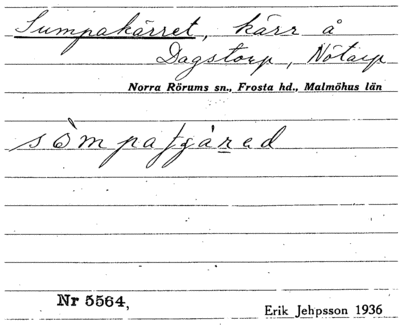 Sumpakärret, kärr å
Dagstorp, Nötarp
Norra Rörums sn., Frosta hd., Malmöhus län
sòmpaʃɡàred
Nr 5564,
Erik Jehpsson 1936